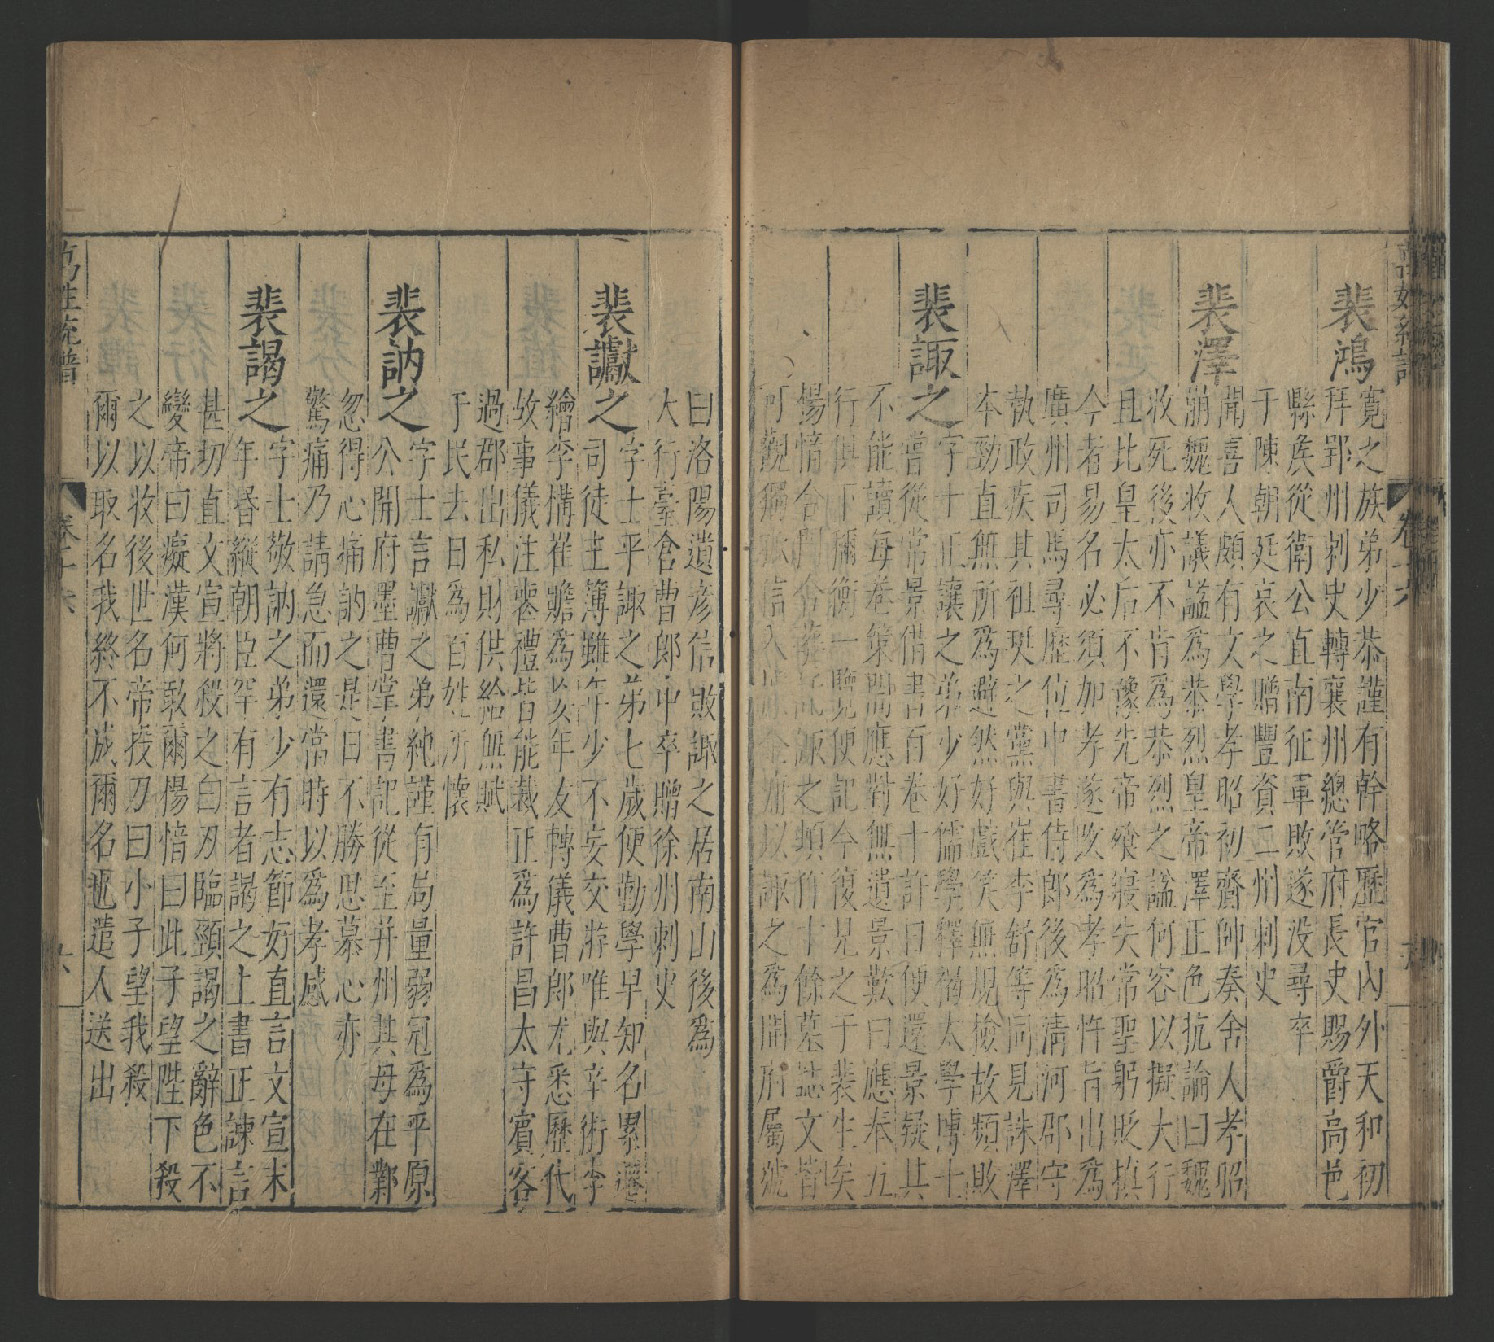 裴鴻
寬之族弟少恭謹有幹略歷官內外天和初
拜郢州刺史轉襄州總管府長史賜爵高邑
縣矦從衛公直南征軍敗遂没尋卒
于陳朝廷哀之贈豐資二州刺史
裴澤
聞喜人頗有文學孝昭初齊帥奏舍人孝昭
崩魏收議謚爲恭烈皇帝澤正色抗論曰魏
收死後亦不肯爲恭烈之謚何容以擬大行
且比皇太后不豫先帝飱寢失常聖躬貶損
今者易名必須加孝遂改爲孝昭忤旨出爲
廣州司馬尋歷位中書侍郎後爲清河郡守
執政疾其祖珽之黨與崔李舒等同見誅澤
本勁直無所爲避然好戲笑無規檢故頻敗
裴諏之
字士正讓之弟少好儒學釋褐太學博士
嘗從常景借書百卷十許日便還景疑其
不能讀每卷策問應對無遺景歎曰應奉五
行俱下禰衡一覽便記今復見之于裴生矣
楊愔合門
諏之頓作十餘墓誌文皆
可觀
信入
以諏之爲開府屬號
曰洛陽遺彥信敗諏之居南山後爲
大行臺倉曹郎中卒贈徐州刺史
裴讞之
字士平諏之弟七歲便勤學早知名累遷
司徒主簿雖年少不妄交游唯與辛術李
繪李構崔瞻爲忘年友轉儀曹郎尤悉歷代
故事儀注喪禮皆能裁正爲許昌太守賓客
過郡出私財供給無賦
于民去日爲百姓所懷
裴訥之
字士言讞之弟純謹有局量弱冠爲平原
公開府墨曹掌書記從至并州其母在鄴
忽得心痛訥之是日不勝思慕心亦
驚痛乃請急而還當時以爲孝感
裴謁之
字士敬訥之弟少有志節好直言文宣末
年昏縱朝臣罕有言者謁之上書正諫言
甚切直文宣將殺之曰刃臨頸謁之辭色不
變帝曰癡漢何敢爾楊愔曰此子望陛下殺
之以收後世名帝投刃曰小子望我殺
爾以取名我終不成爾名也遣人送出
萬姓統譜
卷十六